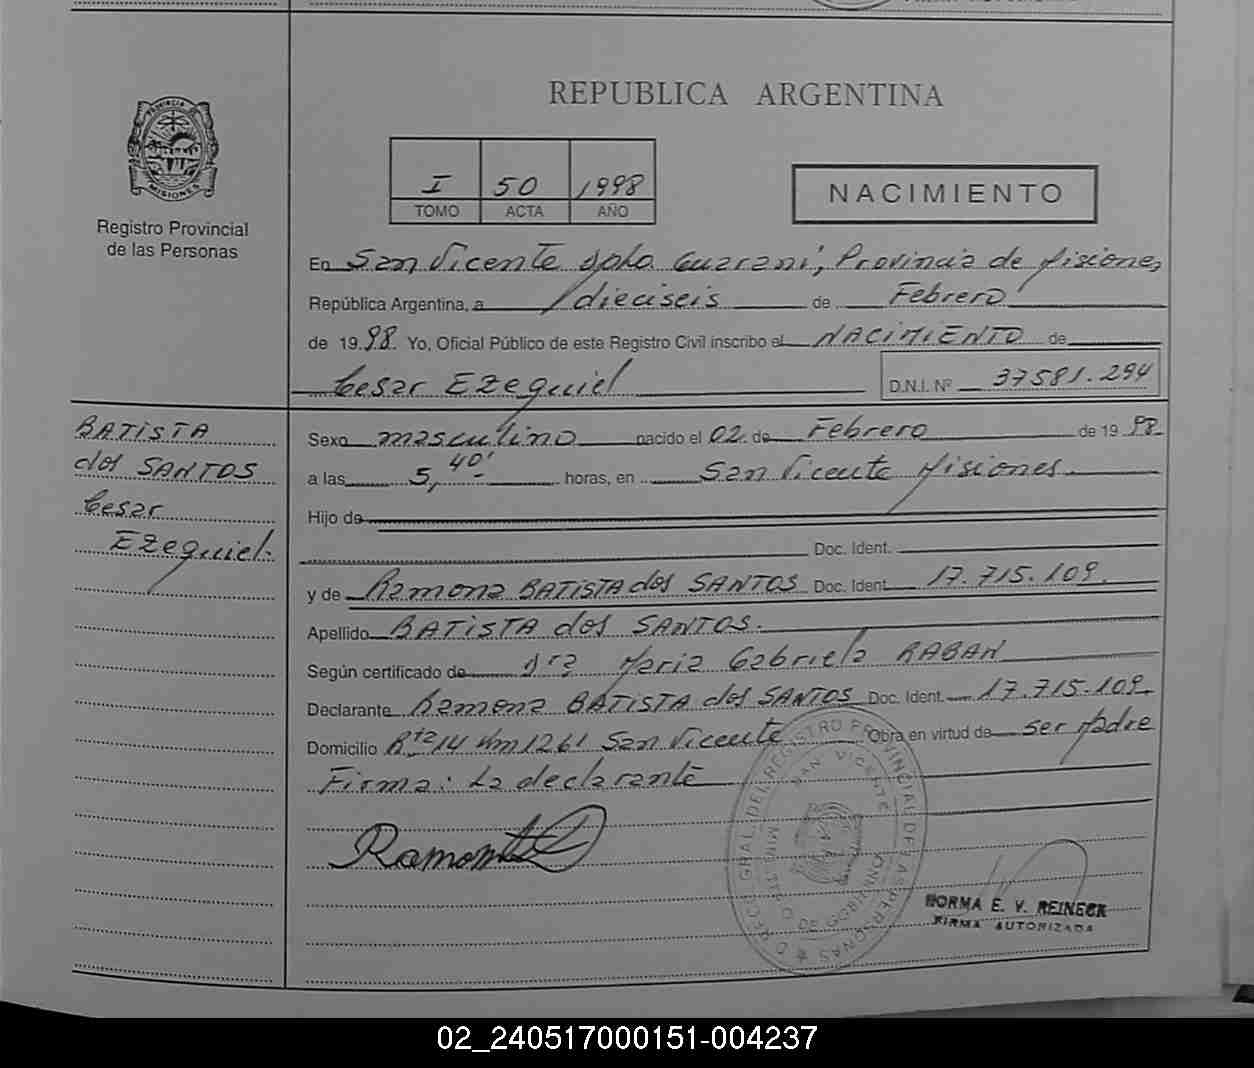 REPUBLICA ARGENTINA
PROVINCIA
MISIONES
Registro Provincial
de las Personas
I 50 1998
TOMO ACTA AÑO
NACIMIENTO
En San Vicente Dpto. Guarani, Provincia de Misiones
República Argentina, a dieciseis de Febrero
de 1998. Yo, Oficial Público de este Registro Civil inscribo el NACIMIENTO de
Cesar Ezequiel D.N.I. Nº 37581.294
BATISTA
dos SANTOS
Cesar
Ezequiel.
Sexo masculino nacido el 02 de Febrero de 1998.
a las 5,40' horas, en San Vicente Misiones.
Hijo de
Doc. Ident.
y de Ramona BATISTA dos SANTOS Doc. Ident. 17.715.109.
Apellido BATISTA dos SANTOS.
Según certificado de Dra Maria Gabriela RABAN
Declarante Ramona BATISTA dos SANTOS Doc. Ident. 17.715.109.
Domicilio Rta 14 Km 1261 San Vicente Obra en virtud de ser Madre
Firma: La declarante
Ramona
GRAL. DEL REGISTRO PROVINCIAL DE LAS PERSONAS
SAN VICENTE
DE GOBIERNO
NORMA E. V. REINECK
FIRMA AUTORIZADA
02_240517000151-004237